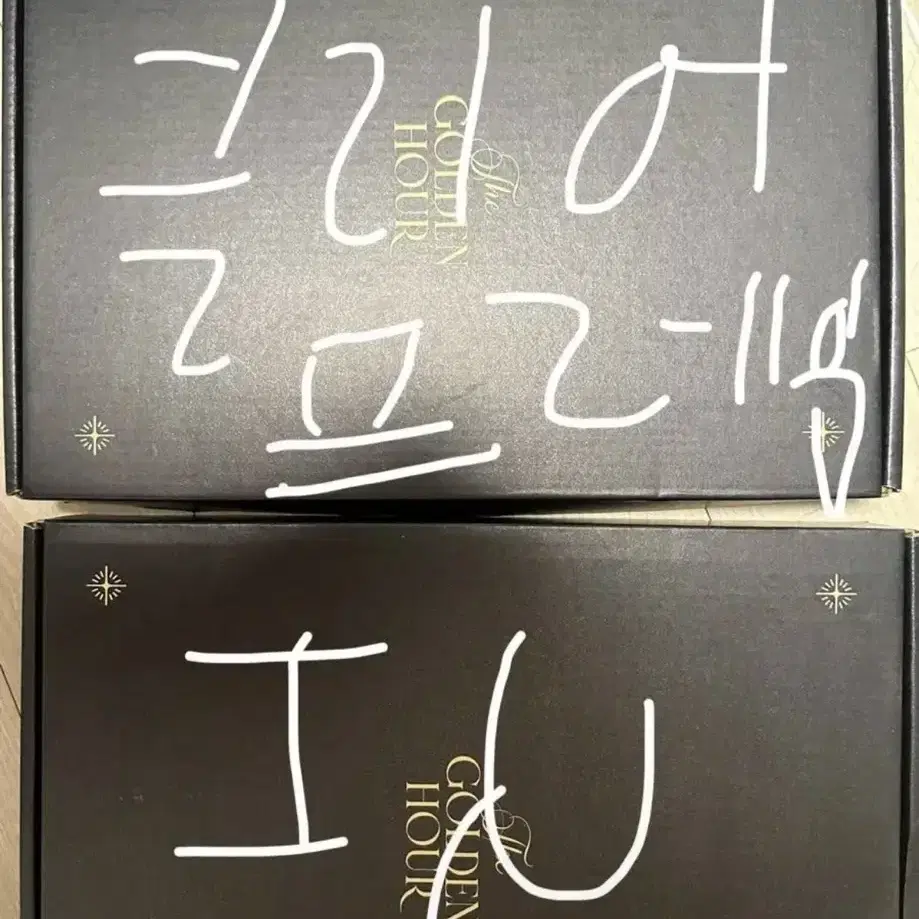 클리어
프레임
The
GOLDEN
HOUR
IU
The
GOLDEN
HOUR